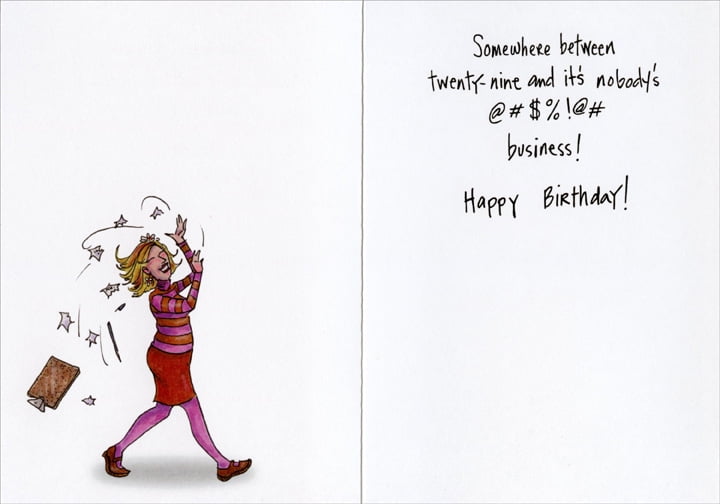 Somewhere between
twenty-nine and it's nobody's
@#$%!@#
business!
Happy Birthday!